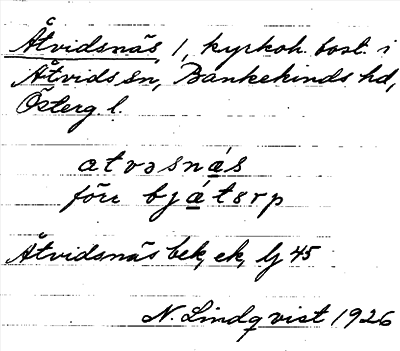 Åtvidsnäs 1, kyrkoh. bost. i
Åtvids sn, Bankekinds hd,
Österg. l.
atvəsnás
förr bjátsrp
Åtvidsnäs bek, ek, lj 45
N. Lindqvist 1926